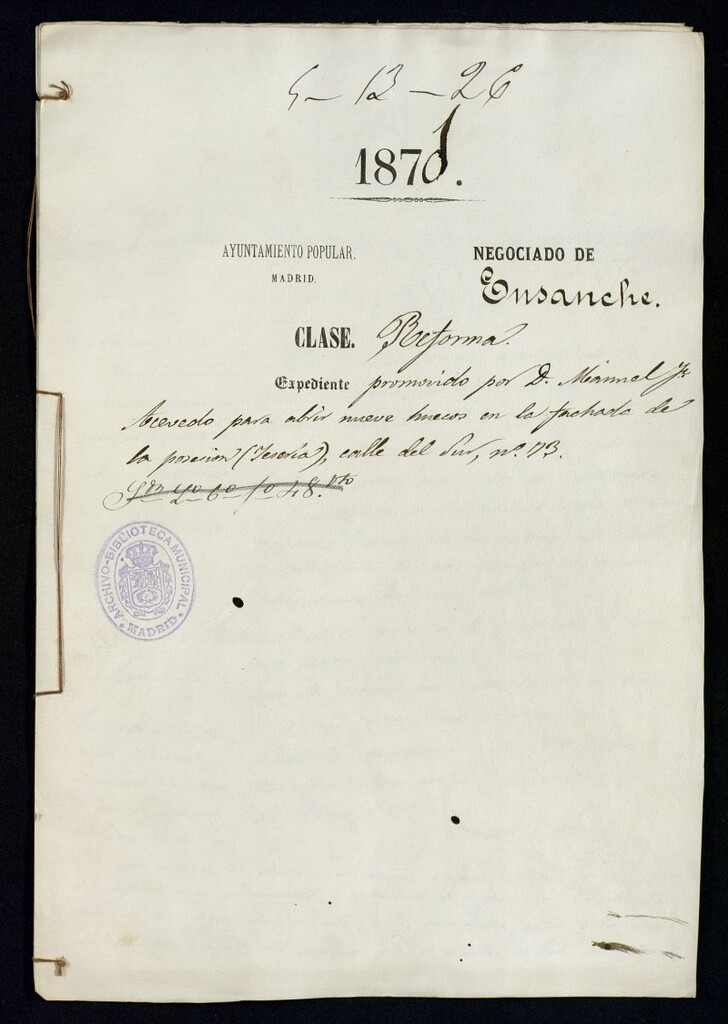 5-13-26
1871.
AYUNTAMIENTO POPULAR.
MADRID.
NEGOCIADO DE
Ensanche.
CLASE. Reforma.
Expediente promovido por D. Manuel
Acevedo para abrir nueve huecos en la fachada de
la posesion (Yesería), calle del Sur, nº 73.
48.
ARCHIVO-BIBLIOTECA MUNICIPAL
MADRID